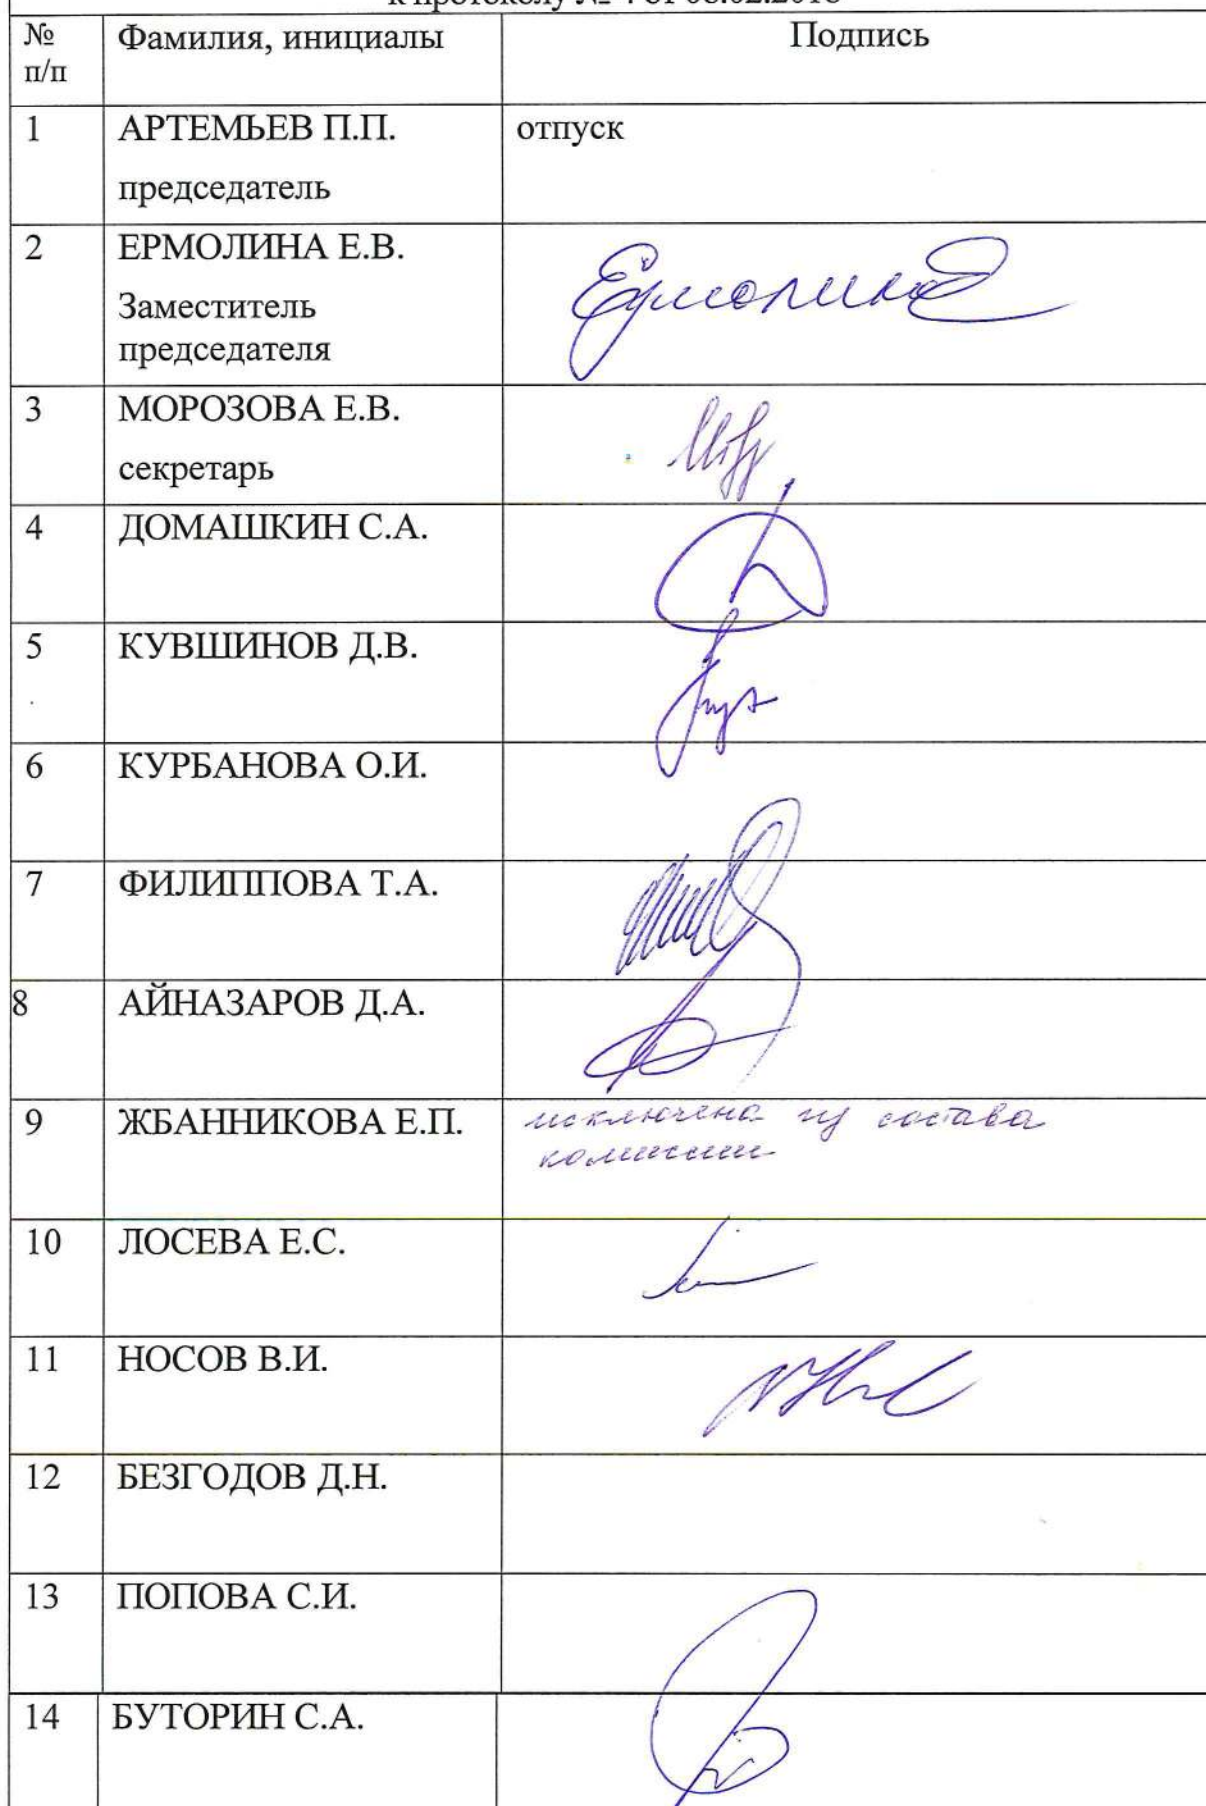 № Фамилия, инициалы Подпись
п/п
1 АРТЕМЬЕВ П.П. отпуск
председатель
2 ЕРМОЛИНА Е.В. Ермолина
Заместитель
председателя
3 МОРОЗОВА Е.В.
секретарь
4 ДОМАШКИН С.А.
5 КУВШИНОВ Д.В.
6 КУРБАНОВА О.И.
7 ФИЛИППОВА Т.А.
8 АЙНАЗАРОВ Д.А.
9 ЖБАННИКОВА Е.П. исключена из состава
комиссии
10 ЛОСЕВА Е.С.
11 НОСОВ В.И.
12 БЕЗГОДОВ Д.Н.
13 ПОПОВА С.И.
14 БУТОРИН С.А.